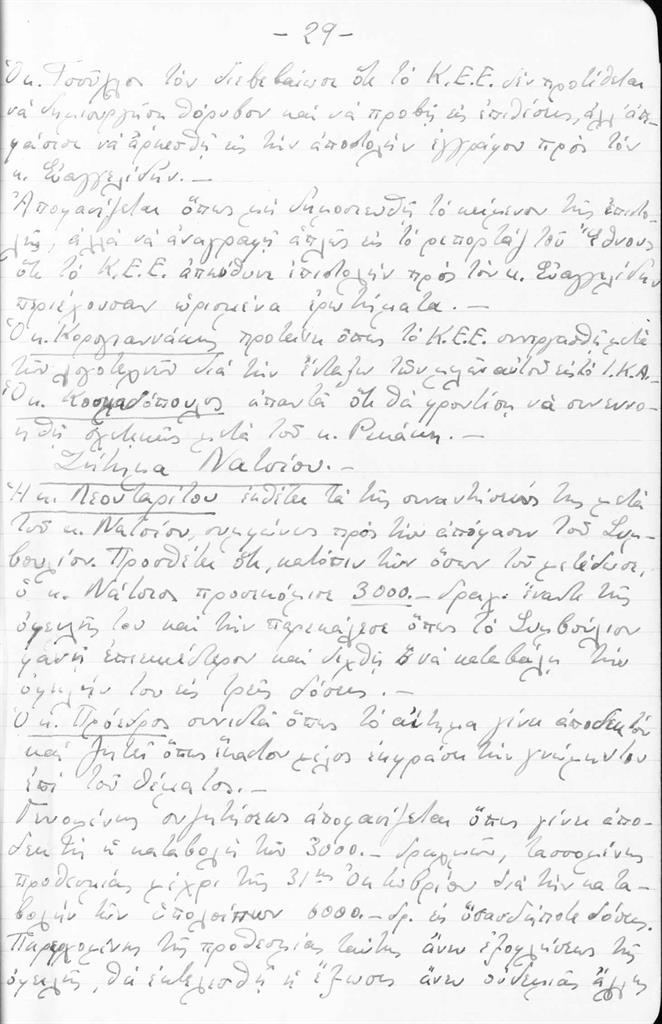 - 29 -
Ὁ κ. Τσοῦλλος τὸν διεβεβαίωσε ὅτι τὸ Κ.Ε.Ε. δὲν προτίθεται
νὰ δημιουργήσῃ θόρυβον καὶ νὰ προβῇ εἰς ἐπιθέσεις, ἀλλ' ἀπε-
φάσισε νὰ ἀρκεσθῇ εἰς τὴν ἀποστολὴν ἐγγράφου πρὸς τὸν
κ. Εὐαγγελίδην. -
Ἀποφασίζεται ὅπως μὴ δημοσιευθῇ τὸ κείμενον τῆς ἐπιστο-
λῆς, ἀλλὰ νὰ ἀναγραφῇ ἁπλῶς εἰς τὸ ρεπορτὰζ τοῦ Ἔθνους
ὅτι τὸ Κ.Ε.Ε. ἀπηύθυνε ἐπιστολὴν πρὸς τὸν κ. Εὐαγγελίδην
περιέχουσαν ὡρισμένα ἐρωτήματα. -
Ὁ κ. Καρογιαννάκης προτείνει ὅπως τὸ Κ.Ε.Ε. συνεργασθῇ μετὰ
τῶν λογοτεχνῶν διὰ τὴν ἔνταξιν τῶν μελῶν αὐτοῦ εἰς τὸ Ι.Κ.Α. -
Ὁ κ. Κοσμαδόπουλος ἀπαντᾶ ὅτι θὰ φροντίσῃ νὰ συνεννο-
ηθῇ σχετικῶς μετὰ τοῦ κ. Ρικάκη. -
Ζήτημα Νατσίου. -
Ἡ κ. Λεονταρίτου ἐκθέτει τὰ τῆς συναντήσεώς της μετὰ
τοῦ κ. Νατσίου, συμφώνως πρὸς τὴν ἀπόφασιν τοῦ Συμ-
βουλίου. Προσθέτει ὅτι, κατόπιν τῶν ὅσων τοῦ μετέδωσε,
ὁ κ. Νάτσιος προσεκόμισε 3000. - δραχ. ἔναντι τῆς
ὀφειλῆς του καὶ τὴν παρεκάλεσε ὅπως τὸ Συμβούλιον
φανῇ ἐπιεικέστερον καὶ δεχθῇ νὰ καταβάλῃ τὴν
ὀφειλήν του εἰς τρεῖς δόσεις. -
Ὁ κ. Πρόεδρος συνιστᾶ ὅπως τὸ αἴτημα γίνει ἀποδεκτὸν
καὶ ζητεῖ ὅπως ἕκαστον μέλος ἐκφράσει τὴν γνώμην του
ἐπὶ τοῦ θέματος. -
Γενομένης συζητήσεως ἀποφασίζεται ὅπως γίνει ἀπο-
δεκτὴ ἡ καταβολὴ τῶν 3000. - δραχμῶν, τασσομένης
προθεσμίας μέχρι τῆς 31ης Ὀκτωβρίου διὰ τὴν κατα-
βολὴν τῶν ὑπολοίπων 6000. - δρ. εἰς ὅσασδήποτε δόσεις.
Παρερχομένης τῆς προθεσμίας ταύτης ἄνευ ἐξοφλήσεως τῆς
ὀφειλῆς, θὰ ἐκτελεσθῇ ἡ ἔξωσις ἄνευ οὐδεμιᾶς ἄλλης